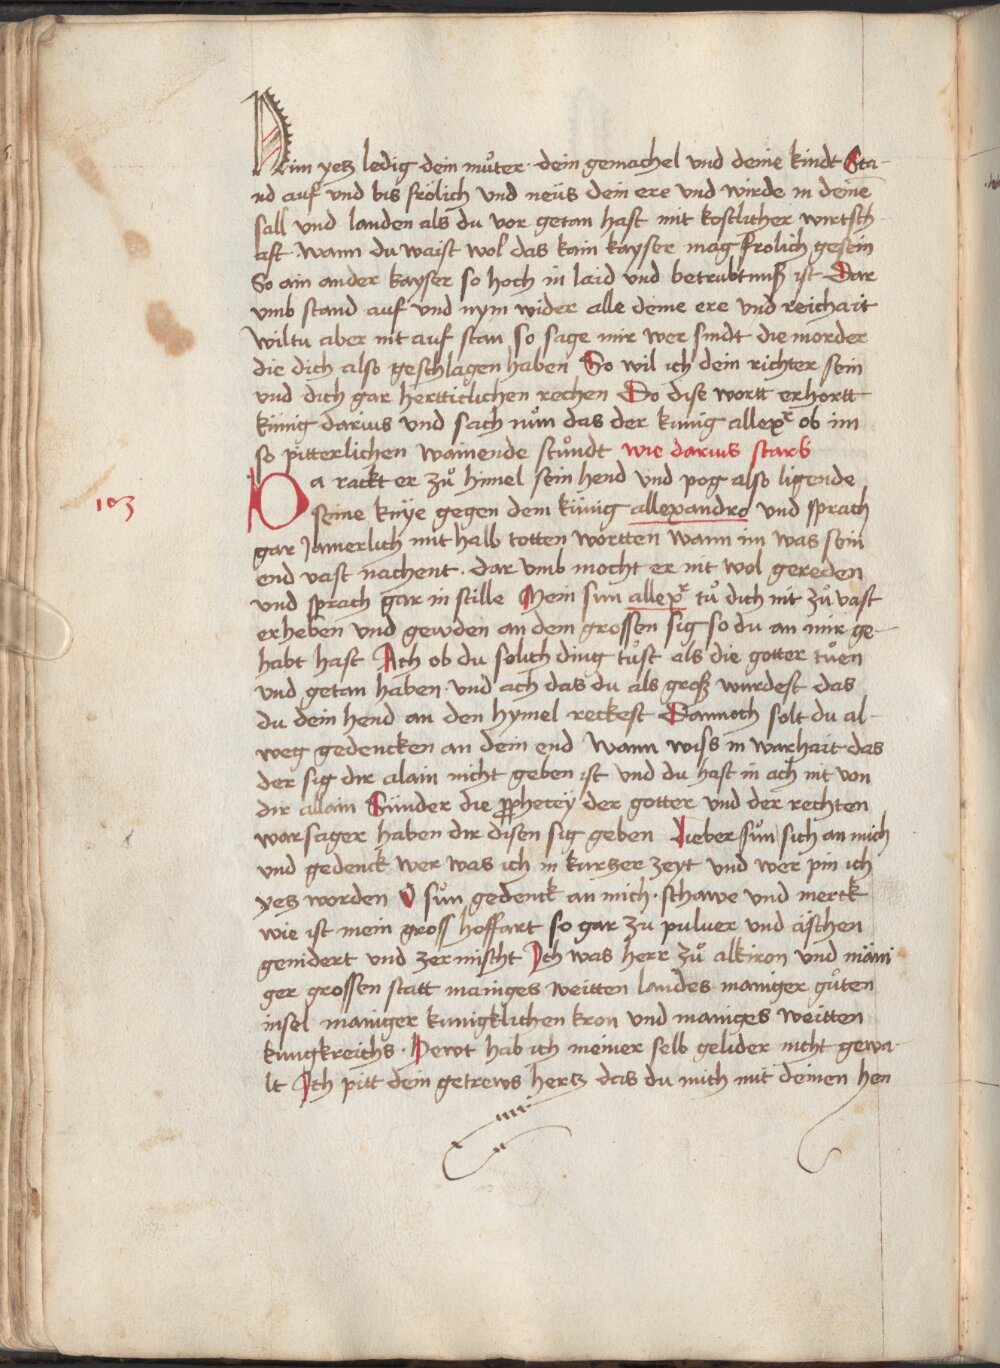 Nim yetz ledig dein muͦter dein gemachel und deine kindt Sta-
nd auf und bis frölich und neüs dein ere und wirde in deinē
sall und landen als du vor getan hast mit kostlicher wirtsch
aft wann du waist wol das kain kayser mag frolich gesein
So ain ander kayser so hoch in laid und betrubtnuß ist Dar
vmb stand auf und nym wider alle deine ere und reichait
Wiltu aber nit auf stan so sage mir wer sindt die morder
die dich also geschlagen haben So wil ich dein richter sein
und dich gar hertticlichen rechen Do dise wortt erhortt
künig darius und sach nuͦn das der kunig allexr ob im
so pitterlichen wainende stuͦndt wie darius starb
Da rackt er zuͦ himel sein hend und pog also ligende
103
seine knÿe gegen dem künig allexandro und sprach
gar Jamerlich mit halb totten wortten wann im was sein
end vast nachent. dar vmb mocht er nit wol gereden
und sprach gar in stille Mein sun allexr tuͦ dich nit zuͦ vast
erheben und gewden an dem grossen sig so du an mir ge-
habt hast Ach ob du solich ding tuͦst als die gotter tuͦen
und getan haben und ach das du als groß wurdest das
du dein hend an den hymel reckest Dannoch solt du al-
weg gedencken an dein end Wann wiss in warhait das
der sig dir alain nicht geben ist und du hast in ach nit von
dir allain Sünder die prophecey der gotter und der rechten
warsager haben dir disen sig geben Lieber suͦn sich an mich
und gedenck wer was ich in kurtzer zeyt und wer pin ich
yetz worden O suͦn gedenck an mich. schawe und merck
wie ist mein gross hoffart so gar zu puluer und äschen
genidert und zermischt Ich was herr zuͦ alkiron und mäni
ger grossen statt maniges weitten landes maniger guͦten
insel maniger kunigklichen kron und maniges weitten
kungkreichs. Hewt hab ich meiner selb gelider nicht gewa-
lt Ich pitt dein getrews hertz das du mich mit deinen hen